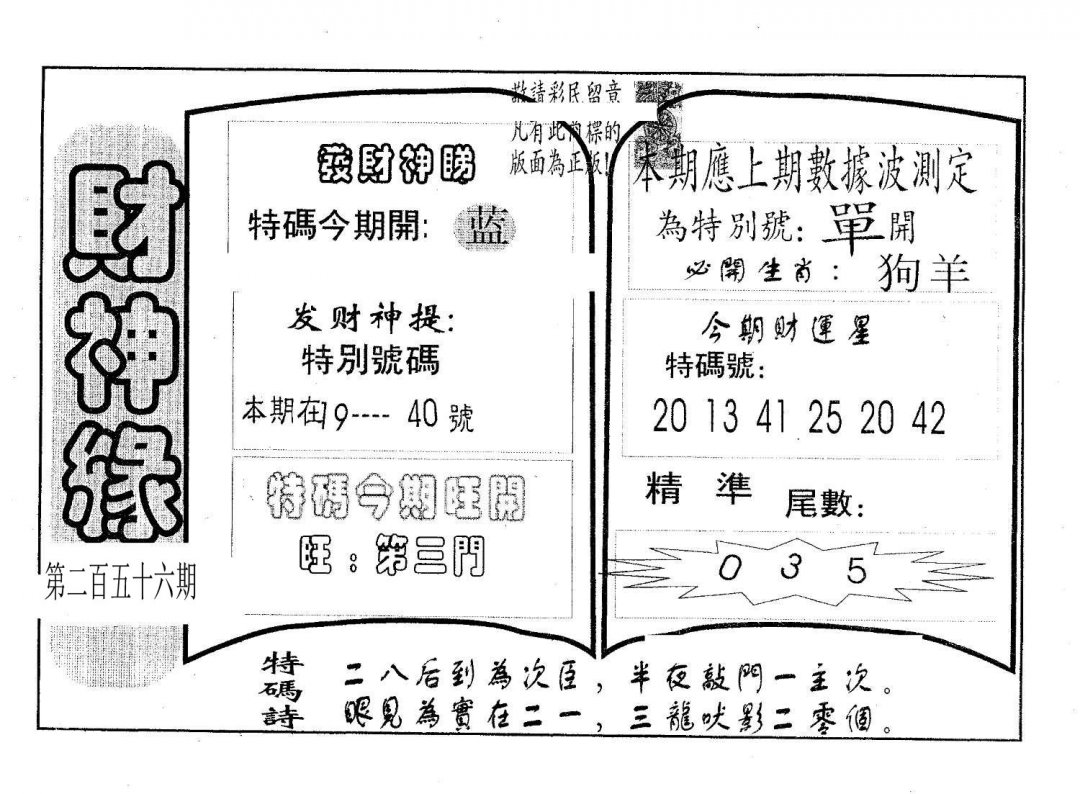 財神緣
第二百五十六期
敬請彩民留意
凡有此商標的
版面為正版!
發財神賜
特碼今期開: 蓝
发财神提:
特別號碼
本期在19---- 40號
特碼今期旺開
旺:第三門
本期應上期數據波測定
為特別號: 單開
必開生肖: 狗羊
今期財運星
特碼號:
20 13 41 25 20 42
精準 尾數:
0 3 5
特碼詩
二八后到為次臣,半夜敲門一主次。
眼見為實在二一,三龍吠影二零個。